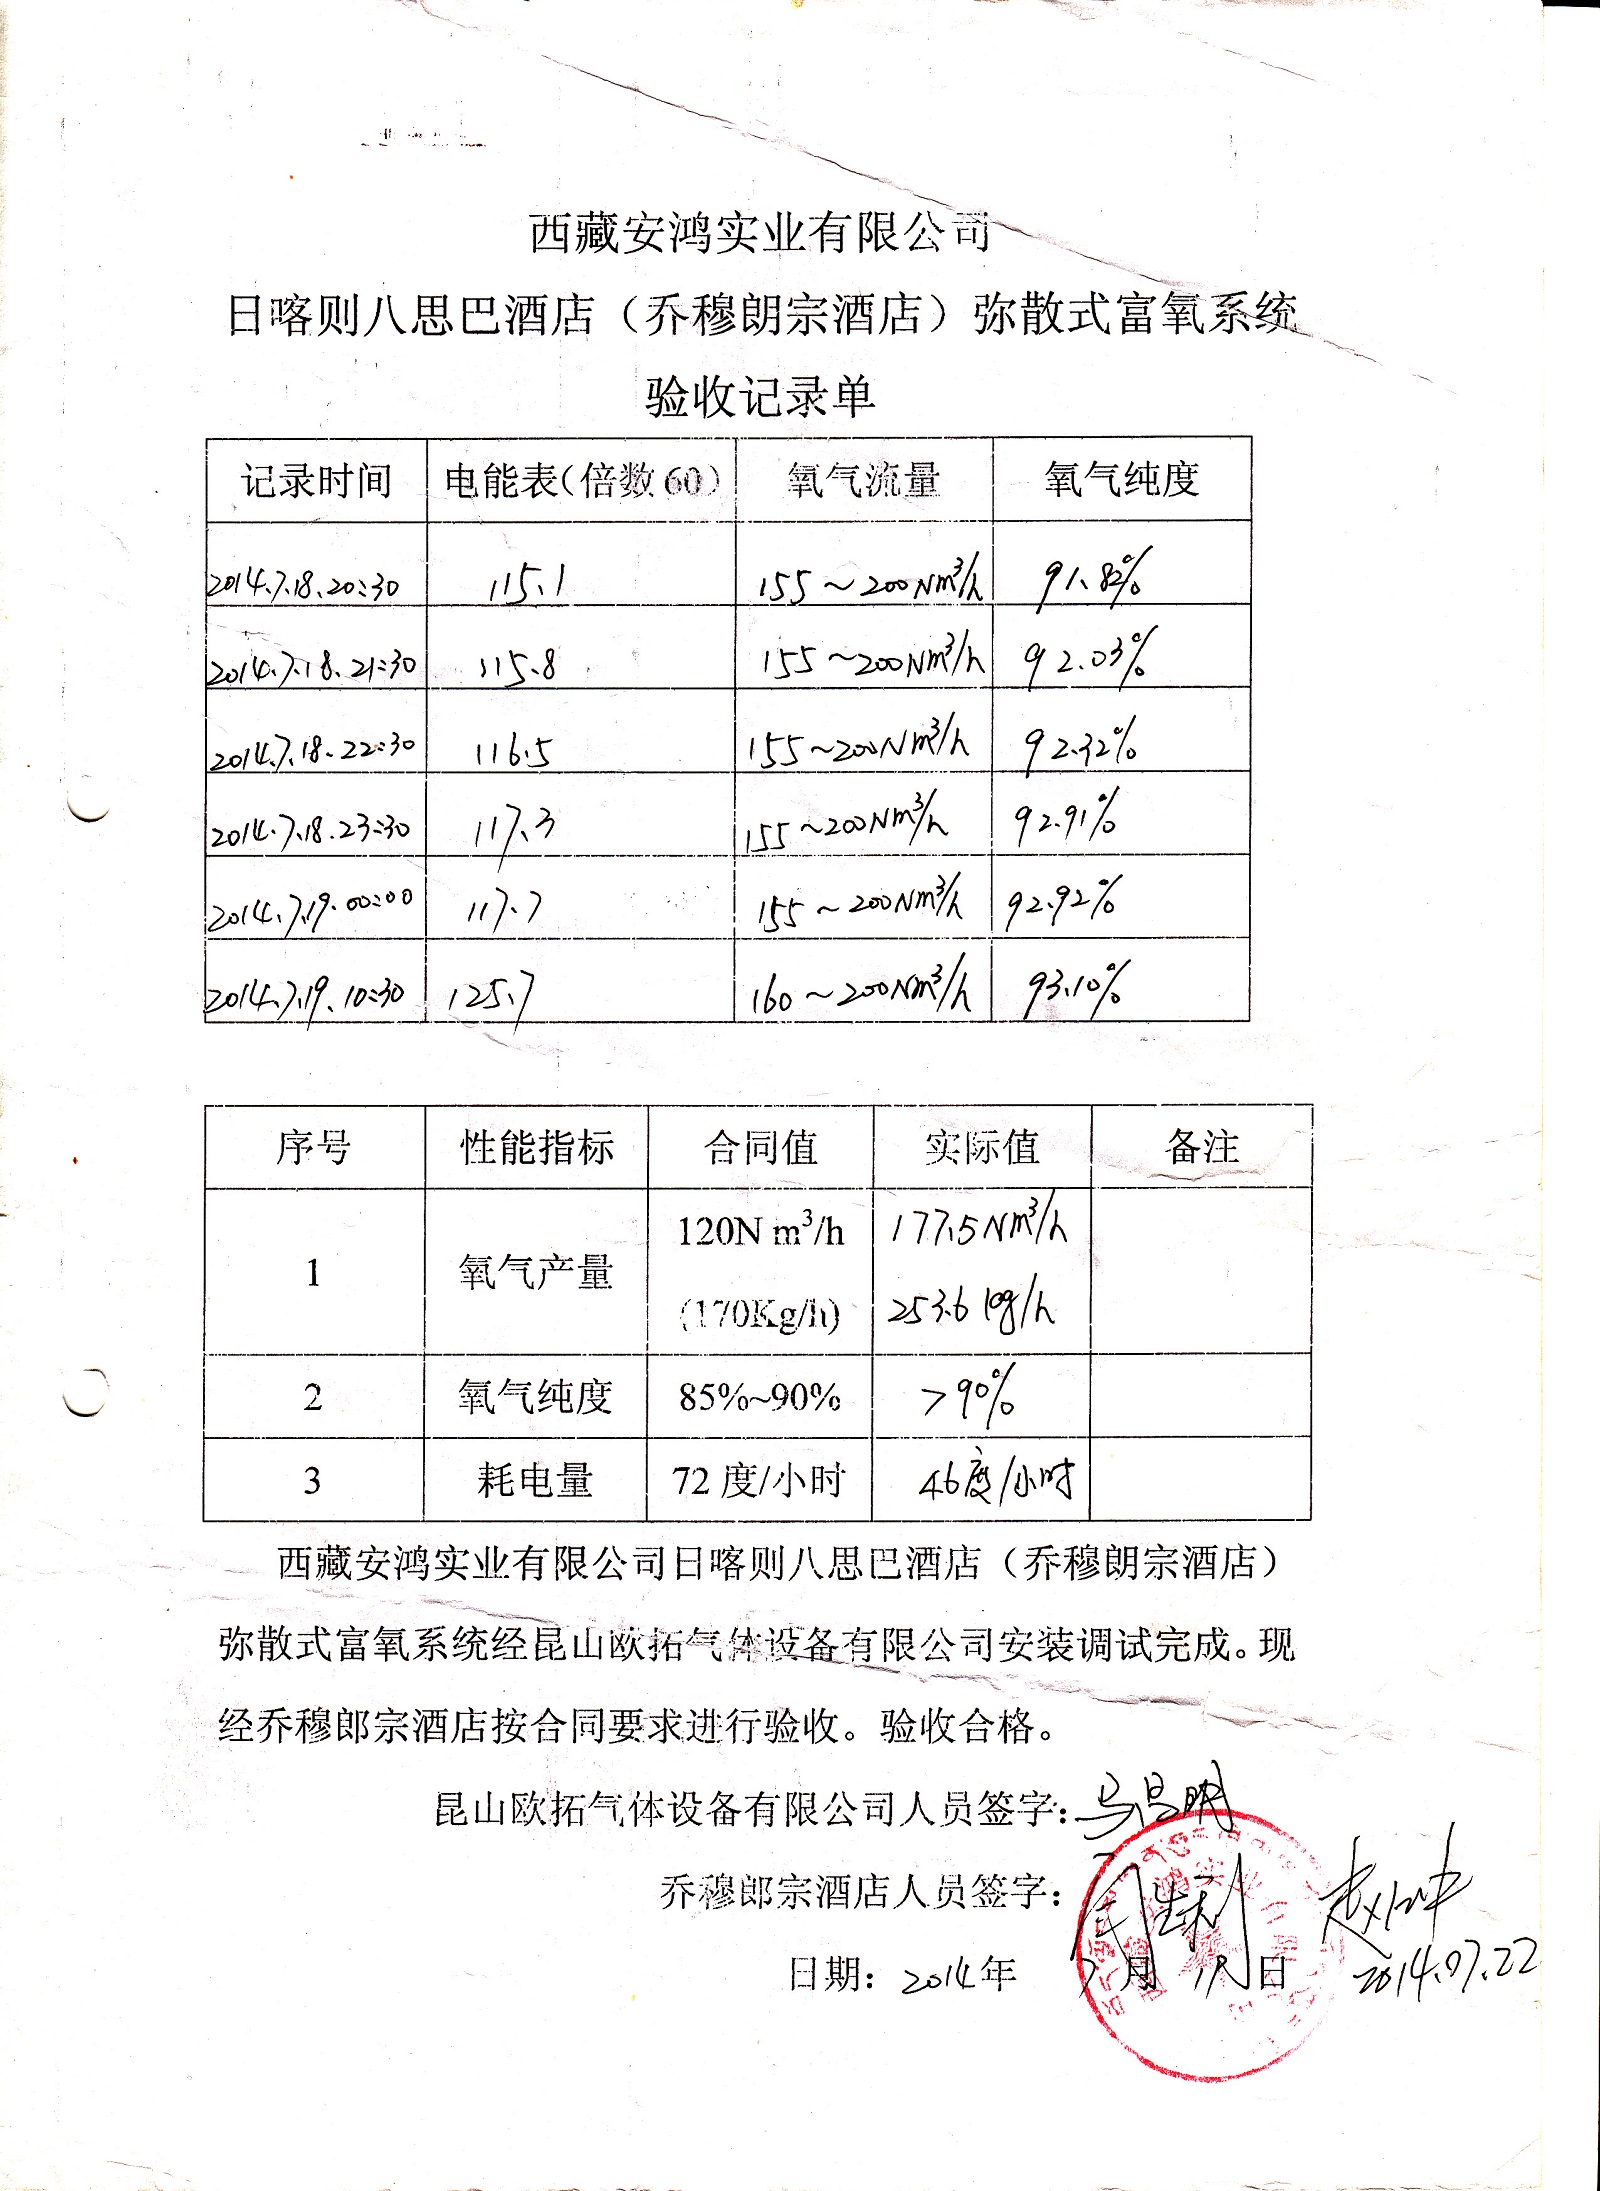 西藏安鸿实业有限公司
日喀则八思巴酒店（乔穆朗宗酒店）弥散式富氧系统
验收记录单
记录时间 电能表（倍数60） 氧气流量 氧气纯度
2014.7.18.20:30 115.1 155~200Nm³/h 91.82%
2014.7.18.21:30 115.8 155~200Nm³/h 92.03%
2014.7.18.22:30 116.5 155~200Nm³/h 92.32%
2014.7.18.23:30 117.3 155~200Nm³/h 92.91%
2014.7.19.00:00 117.7 155~200Nm³/h 92.92%
2014.7.19.10:30 125.7 160~200Nm³/h 93.10%
序号 性能指标 合同值 实际值 备注
1 氧气产量 120N m³/h 177.5Nm³/h
(170Kg/h) 253.6kg/h
2 氧气纯度 85%~90% >90%
3 耗电量 72度/小时 46度/小时
西藏安鸿实业有限公司日喀则八思巴酒店（乔穆朗宗酒店）
弥散式富氧系统经昆山欧拓气体设备有限公司安装调试完成。现
经乔穆郎宗酒店按合同要求进行验收。验收合格。
昆山欧拓气体设备有限公司人员签字：
乔穆郎宗酒店人员签字：
日期：2014年 7月 19日 2014.07.22